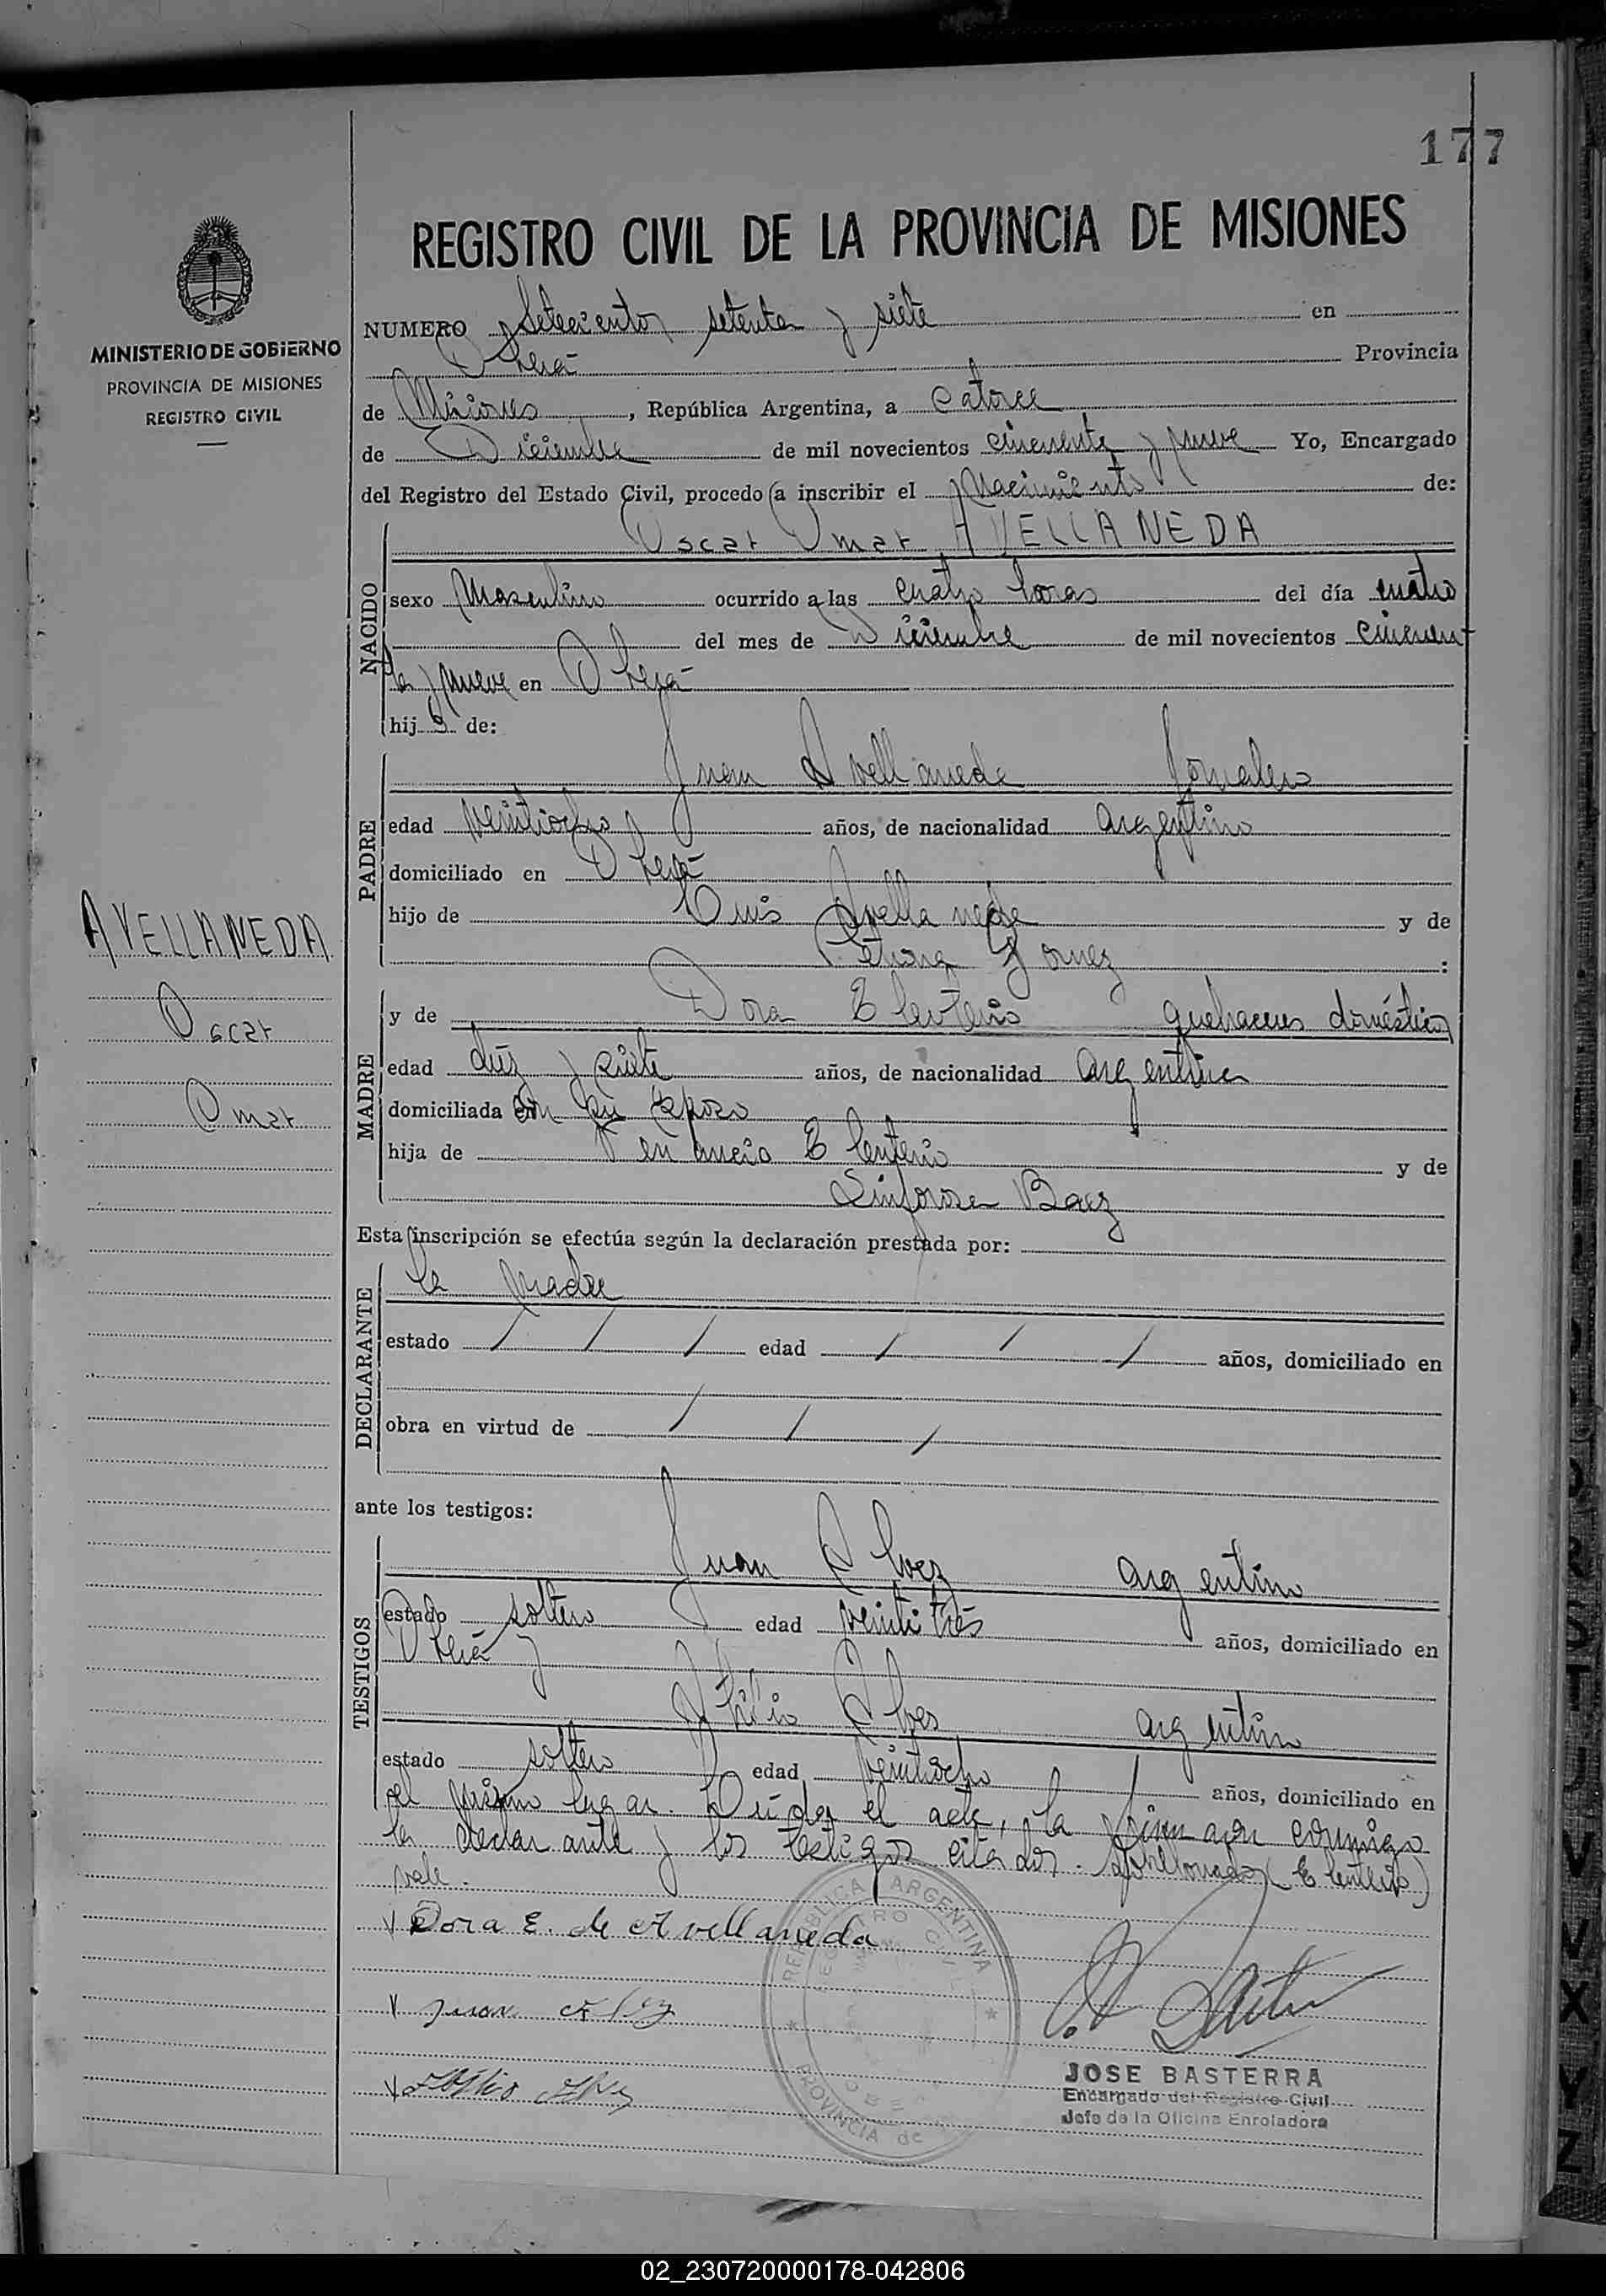 177
REGISTRO CIVIL DE LA PROVINCIA DE MISIONES
MINISTERIO DE GOBIERNO
PROVINCIA DE MISIONES
REGISTRO CIVIL
NUMERO Setecientos setenta y siete en
Oberá Provincia
de Misiones, República Argentina, a catorce
de Diciembre de mil novecientos cincuenta y nueve Yo, Encargado
del Registro del Estado Civil, procedo a inscribir el Nacimiento de:
NACIDO
Oscar Omar AVELLANEDA
sexo Masculino ocurrido a las cuatro horas del día cuatro
del mes de Diciembre de mil novecientos cincuen
ta y nueve en Oberá
hijo de:
PADRE
Juan Avellaneda Jornalero
edad veintiocho años, de nacionalidad argentino
domiciliado en Oberá
hijo de Luis Avellaneda y de
Petrona Gomez :
AVELLANEDA
Oscar
Omar
MADRE
y de Dora Eleuterio quehaceres domésticos
edad diez y siete años, de nacionalidad argentina
domiciliada con su esposo
hija de Venancio Eleuterio y de
Sinforosa Baez
Esta inscripción se efectúa según la declaración prestada por:
DECLARANTE
la Madre
estado / / / edad / / / años, domiciliado en
obra en virtud de / / /
ante los testigos:
TESTIGOS
Juan Alvez argentino
estado soltero edad veintitrés años, domiciliado en
Oberá y
Atilio Alves argentino
estado soltero edad veintiocho años, domiciliado en
el mismo lugar. Leída el acta, la firman conmigo
la declarante y los testigos citados. Sobrerronado (Eleuterio)
vale.
Dora E. de Avellaneda
Juan Alvez
Atilio
REPUBLICA ARGENTINA
REGISTRO CIVIL
PROVINCIA de
JOSE BASTERRA
Encargado del Registro Civil
Jefe de la Oficina Enroladora
02_230720000178-042806